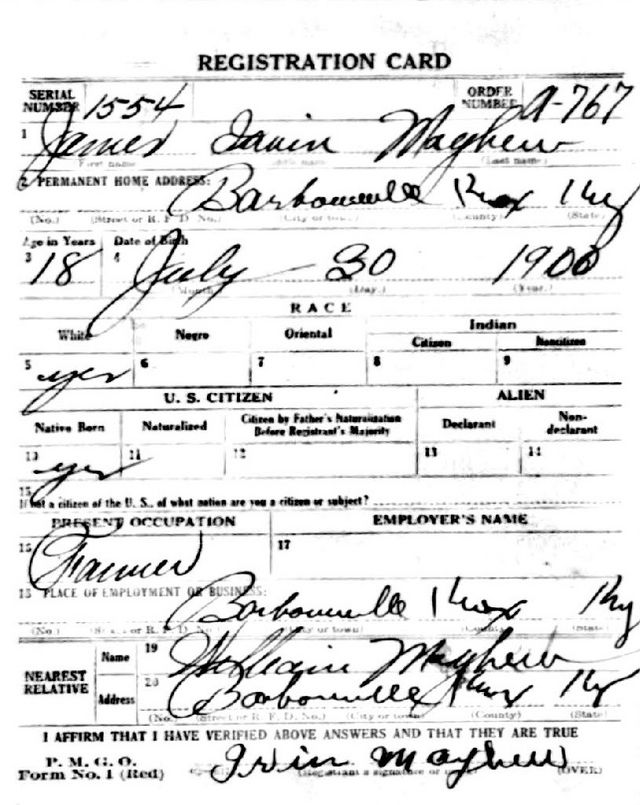 REGISTRATION CARD
SERIAL NUMBER 1554 ORDER NUMBER A-767
1 James Irvin Mayhew
First name (Last name)
2 PERMANENT HOME ADDRESS: Barbourville Knox Ky
(No.) (Street or R. F. D. No.) (City or town) (County) (State)
Age in Years Date of Birth
3 18 4 July 30 1900
(Month.) (Day.) (Year.)
RACE
White Negro Oriental Indian
Citizen Noncitizen
5 yes 6 7 8 9
U. S. CITIZEN ALIEN
Native Born Naturalized Citizen by Father's Naturalization Before Registrant's Majority Declarant Non-declarant
10 yes 11 12 13 14
15
If not a citizen of the U. S., of what nation are you a citizen or subject?
PRESENT OCCUPATION EMPLOYER'S NAME
16 Farmer 17
18 PLACE OF EMPLOYMENT OR BUSINESS:
Barbourville Knox Ky
(No.) (Street or R. F. D. No.) (City or town) (County) (State)
NEAREST RELATIVE Name 19 William Mayhew
Address 20 Barbourville Knox Ky
(No.) (Street or R. F. D. No.) (City or town) (County) (State)
I AFFIRM THAT I HAVE VERIFIED ABOVE ANSWERS AND THAT THEY ARE TRUE
P. M. G. O.
Form No. 1 (Red) Irvin Mayhew
(Registrant's signature or (OVER)